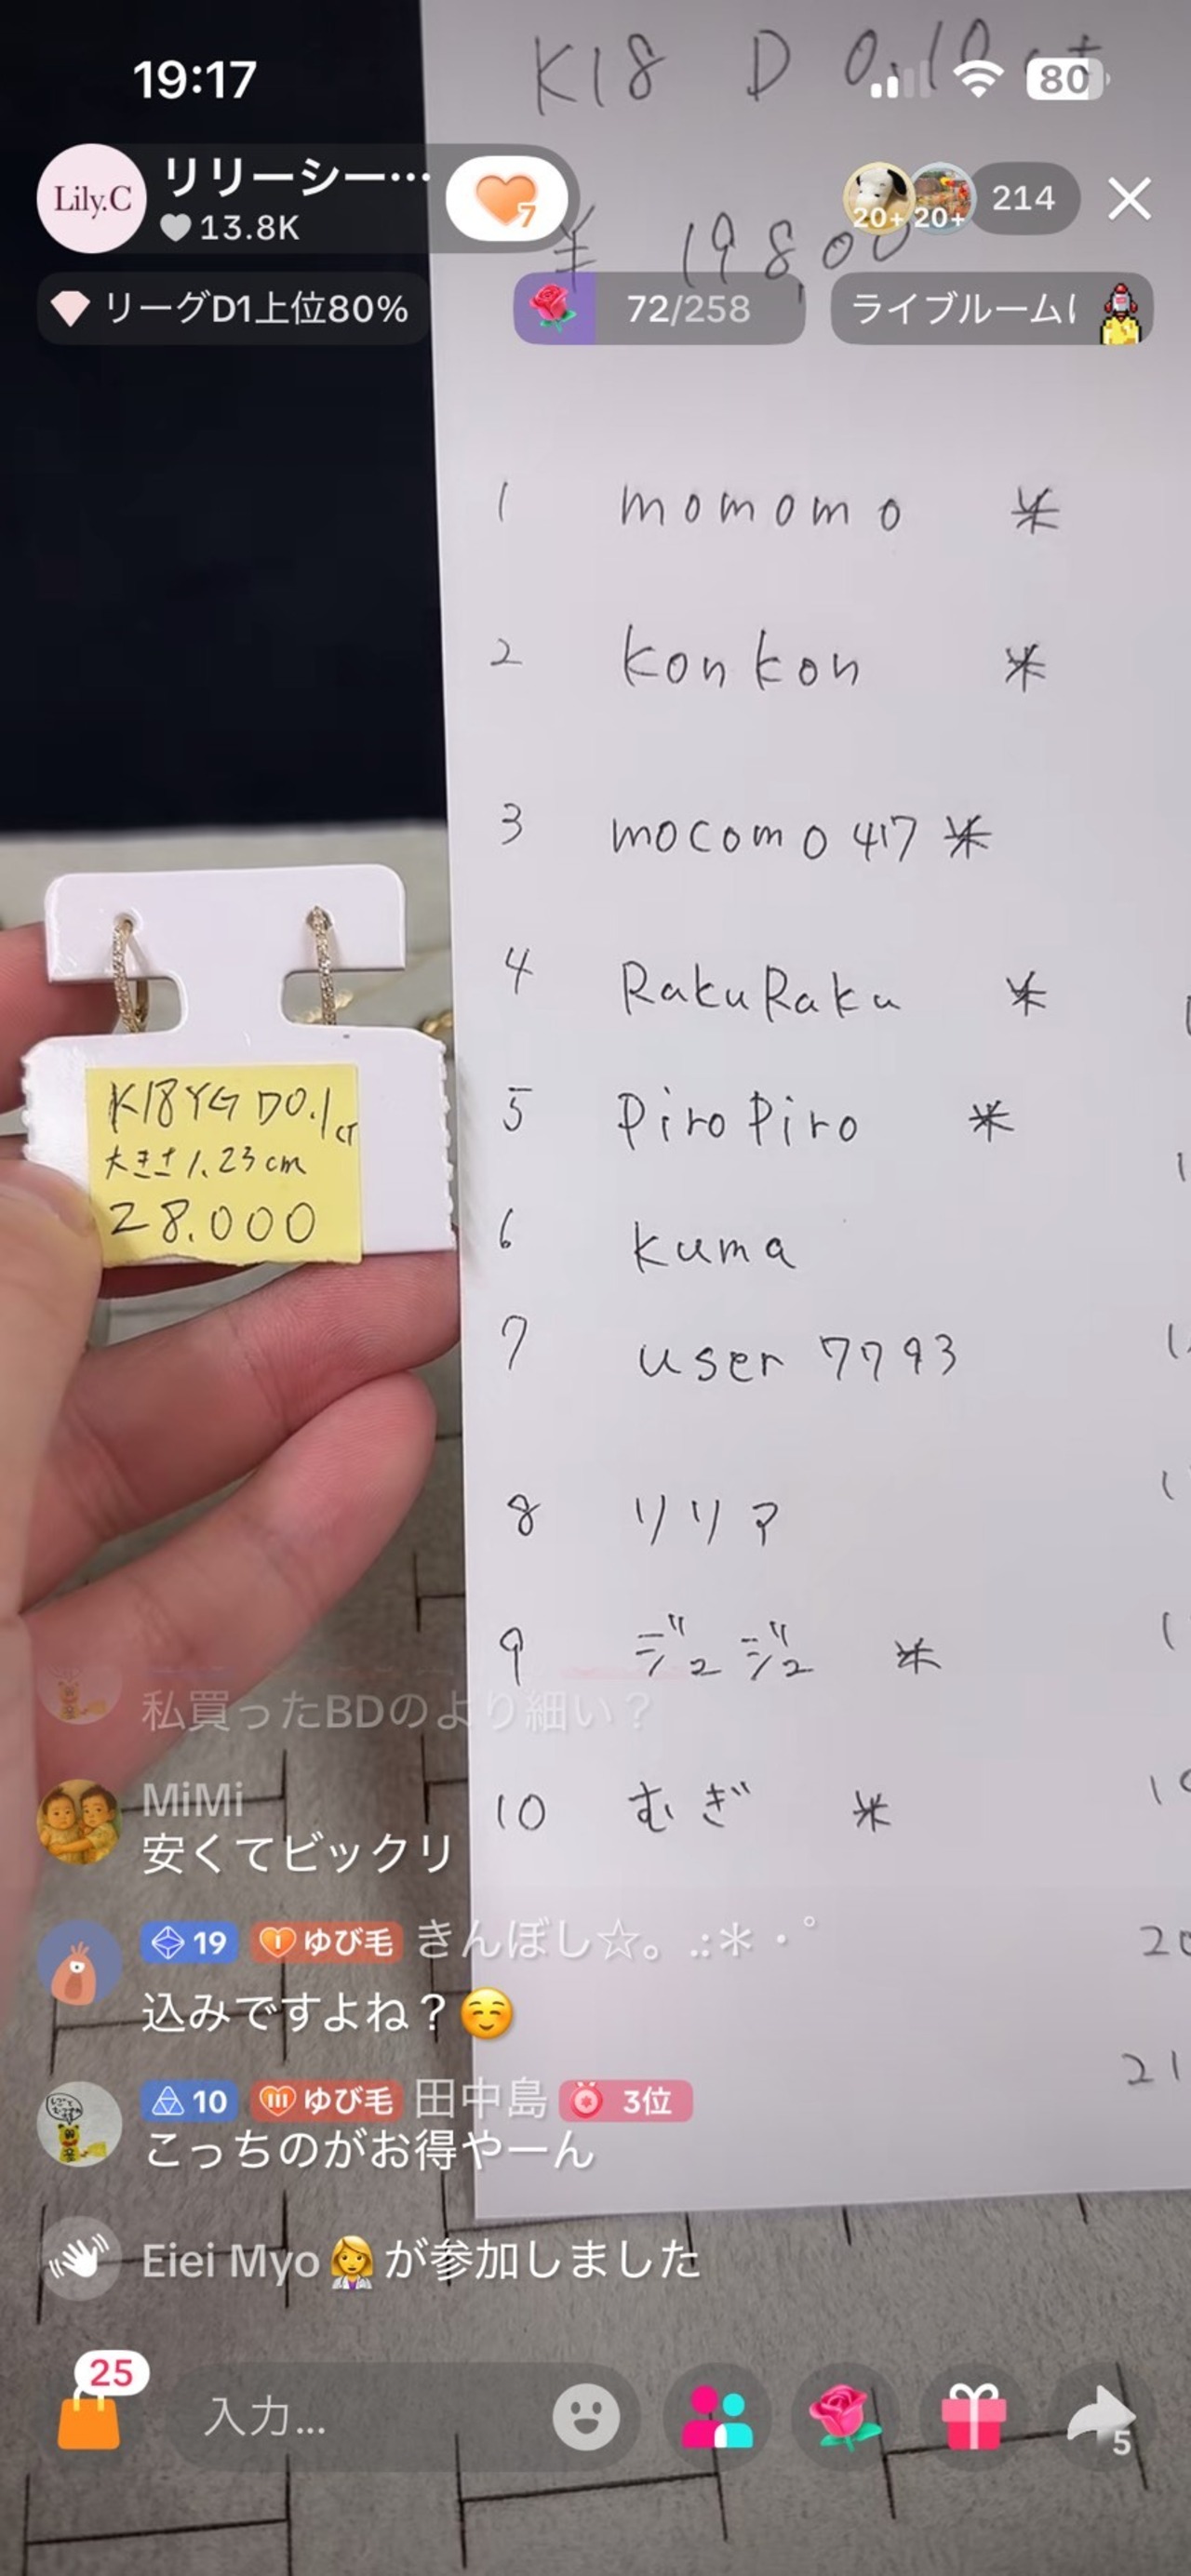 19:17
80
K18 D 0.10ct
Lily.C
リリーシー…
13.8K
7
20+
20+
214
¥ 19,800
リーグD1上位80%
72/258
ライブルーム
1 momomo ※
2 konkon ※
3 mocomo417 ※
4 RakuRaku ※
5 PiroPiro ※
6 kuma
7 user 7793
8 リリア
9 ジュジュ ※
10 むぎ ※
20
21
K18YG D0.1ct
大きさ1.23cm
28.000
私買ったBDのより細い？
MiMi
安くてビックリ
19 I ゆび毛 きんぼし☆。.:＊・゜
込みですよね？☺️
10 III ゆび毛 田中島 3位
こっちのがお得やーん
Eiei Myo👩‍⚕️が参加しました
25
入力...
5